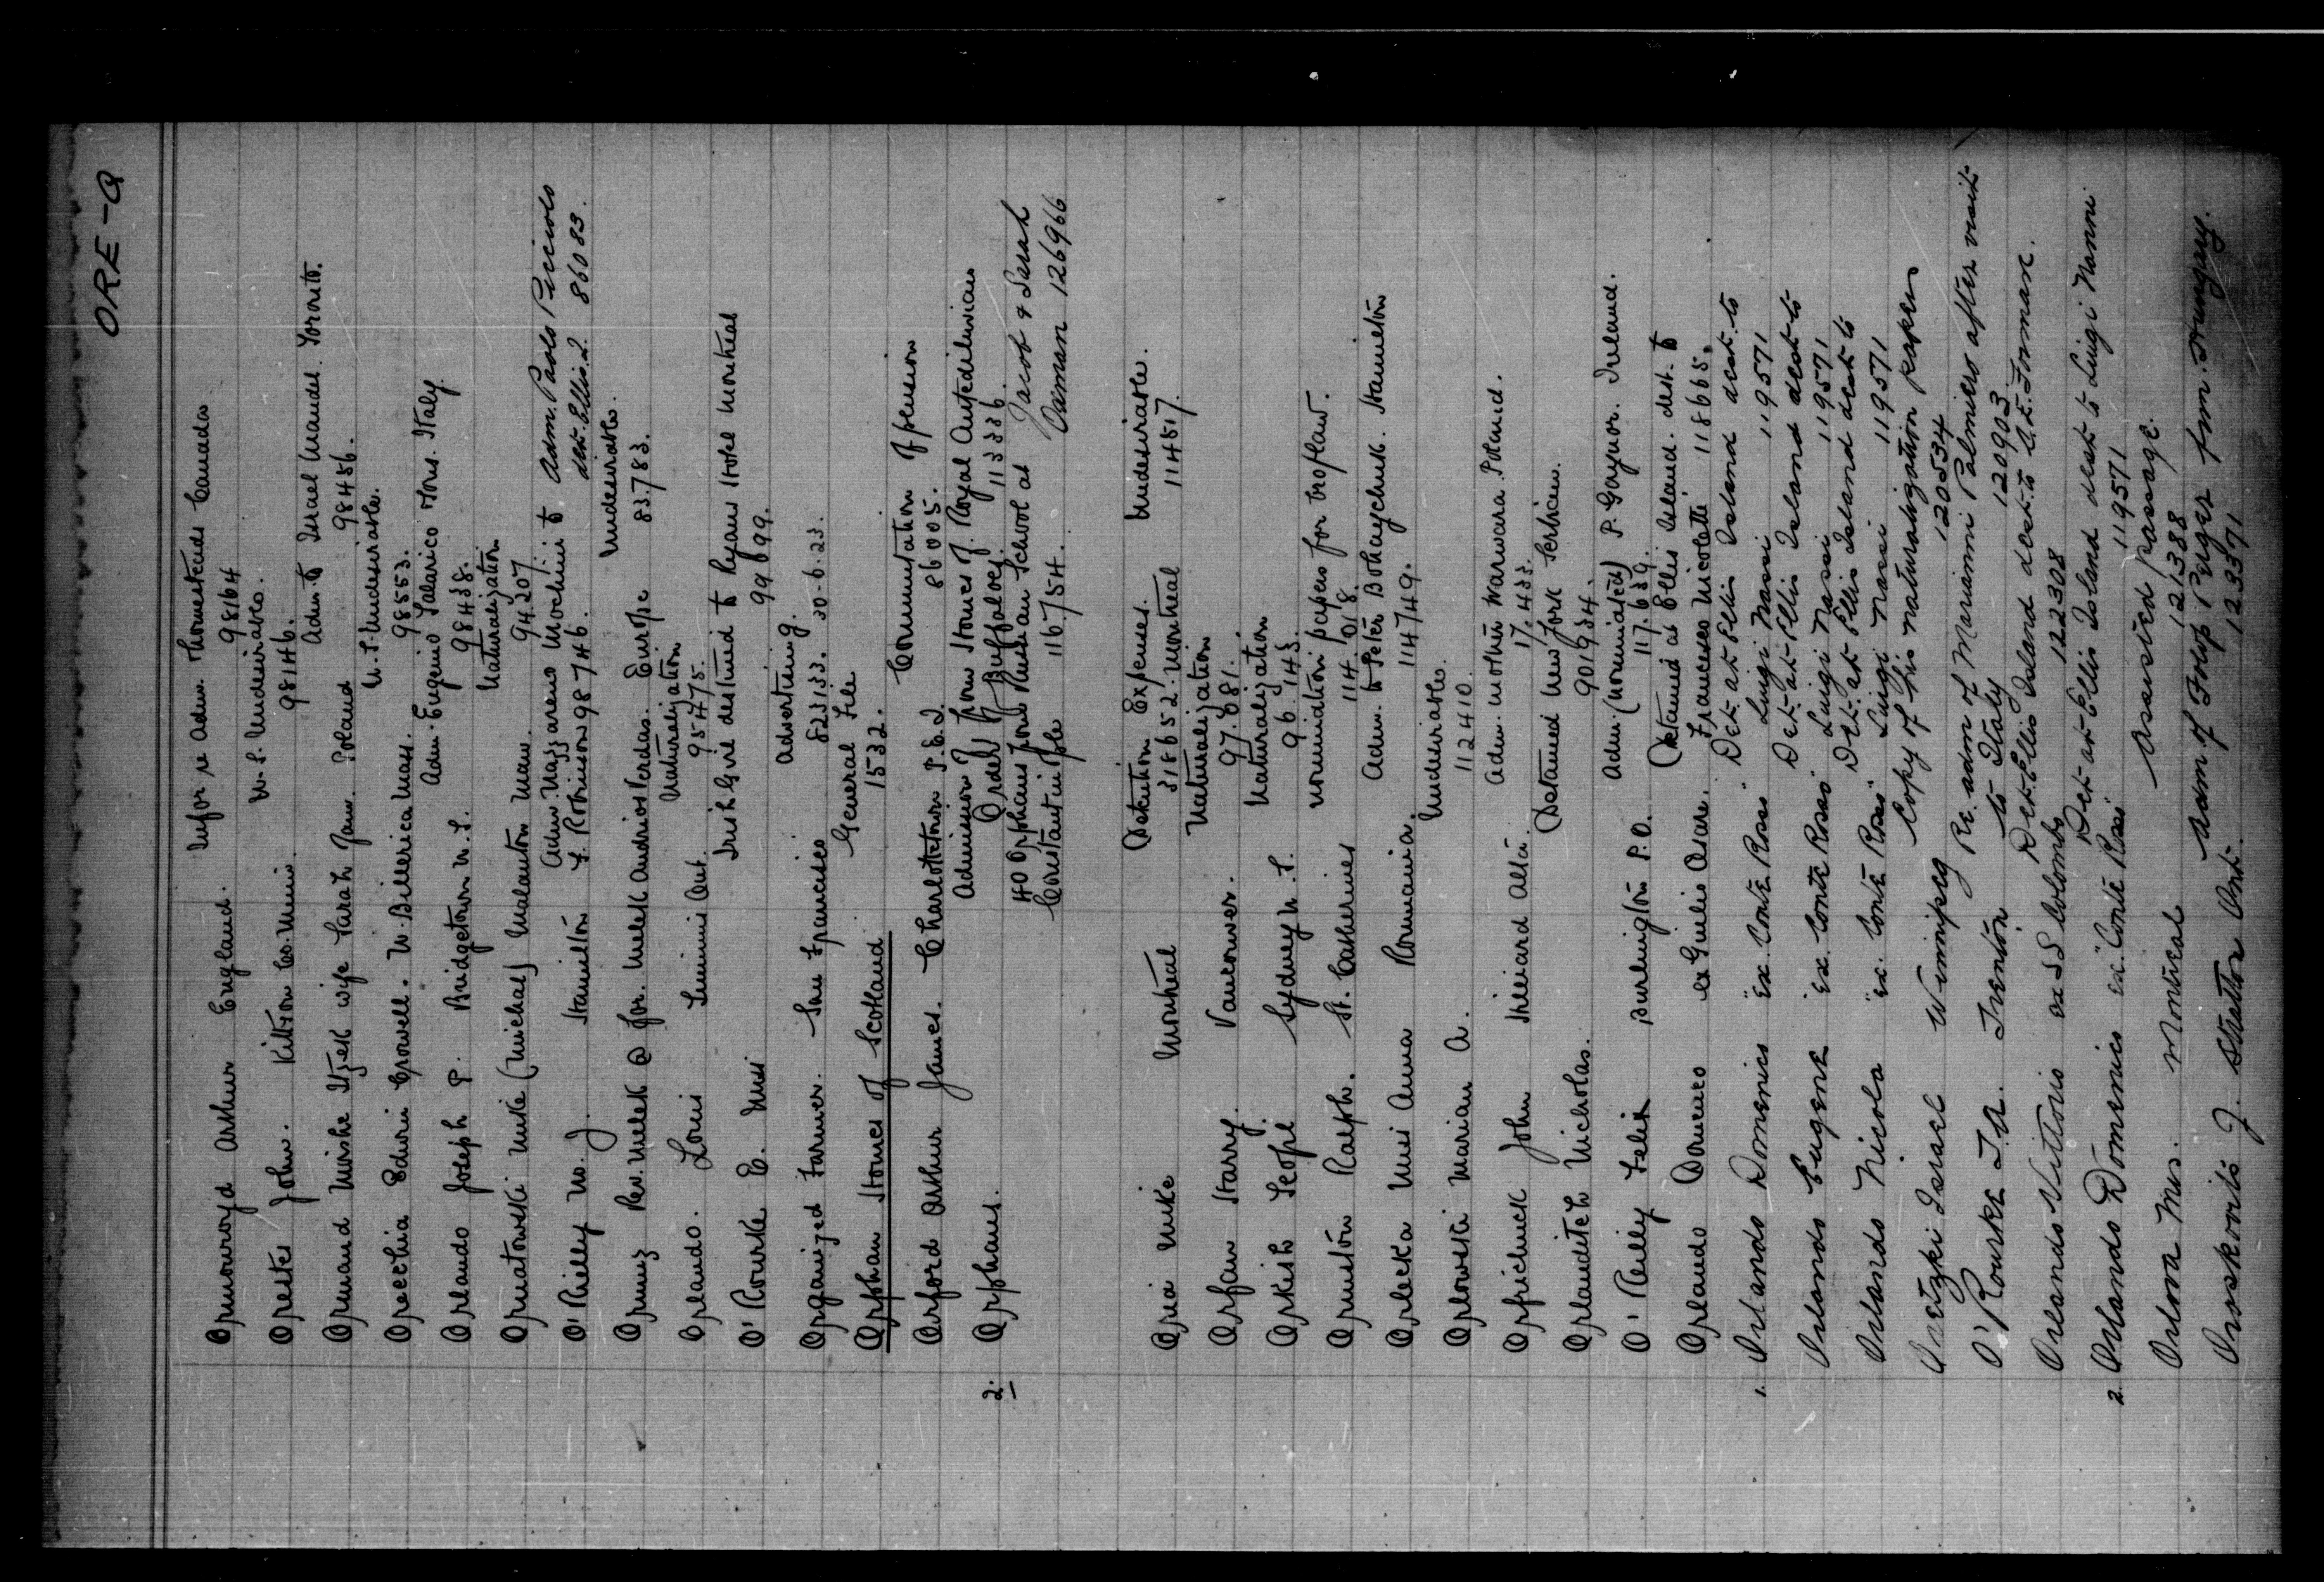 ORE-Q
Ormonroyd Arthur England. Infor re Adm. Homesteads Canada
98164
Orestes John. Kittson Co. Minn. U.S. Undesirables.
98146.
Ormand Moishe Itzek wife Sarah Jam. Poland Adm. to Israel Mandel. Toronto.
98456.
Orecchia Edwin Crowell. N. Billerica Mass. U.S. Undesirable.
98553.
Orlando Joseph P. Bridgetown N.S. Adm. Eugenio Salarico Mons. Italy
98438.
Ormatowski Mike (Michal) Malanton Man. Naturalization
94207
O'Reilly W. J. Hamilton Adm. Nazzareno Mochini to Adm. Paolo Picciolo
F. Robinson 98746. det. Ellis I. 86083.
Ormuz Rev. Melek @ for. Melek Andrios Verdas. Europe Undesirables.
83.783.
Orlando. Louis Simmins Ont. Naturalization
95475.
O'Rourke E. Miss Irish Girl destined to Ryans Hotel Montreal
99699.
Organized Farmer. San Francisco Advertising.
523133. 30-6-23.
Orphan Homes of Scotland General File
1532.
Orford Arthur James. Charlottetown P.E.I. Commutation of pension
86005.
2. Orphans. Admission of from Homes of Royal Antediluvian
Order of Buffaloes. 113336.
40 Orphans from Russian School at Jacob & Sarah
Constantinople 116754. Oxman 126966
Oria Mike Montreal Detention Expenses. Undesirable.
316652. Montreal 114517.
Orfan Harry. Vancouver. Naturalization
97.681.
Orkish Seopl Sydney N.S. Naturalization
96.143.
Ormston Ralph. St. Catherines nomination papers for bro/law.
114.018.
Orlecka Miss Anna Romania. Adm. to Peter Bohaychuk. Hamilton
114749.
Orlowski Marian A. Undesirables.
112410.
Orfrichuck John Shiriard Alta. Adm. Mother Warwara. Poland.
17.433.
Orlanditch Nicholas. Detained New York Serbian.
901934.
O'Reilly Felix Burlington P.O. Adm. (nominated) P. Gaynor. Ireland.
117.639.
Orlando Domenico ex Giulio Cesare. Detained at Ellis Island. dest. to
Francesco Nicoletti 118665.
1. Orlando Domenico "ex. Conte Rosso" Det. at Ellis Island dest. to
Luigi Nassi 119571
Orlando Eugene "ex. Conte Rosso" Det. at Ellis Island dest to
Luigi Nassi 119571
Orlando Nicola "ex. Conte Rosso" Det. at Ellis Island dest to
Luigi Nassi 119571
Oretzki Israel Winnipeg Copy of his naturalization papers
120534
O'Rourke J.A. Trenton Re. adm of Marianni Palmiero after visit
to Italy 120903.
Orlando Vittorio ex SS Colombo Det. Ellis Island dest. to A.E. Forman.
122308
2. Orlando Domenico ex. "Conte Rosso" Det at Ellis Island dest to Luigi Nanni
119571
Orlova Mrs. Montreal Assisted passage.
121388
Oroskovits J. Stratton Ont. Adm of Folop Peiger frm. Hungary.
123371